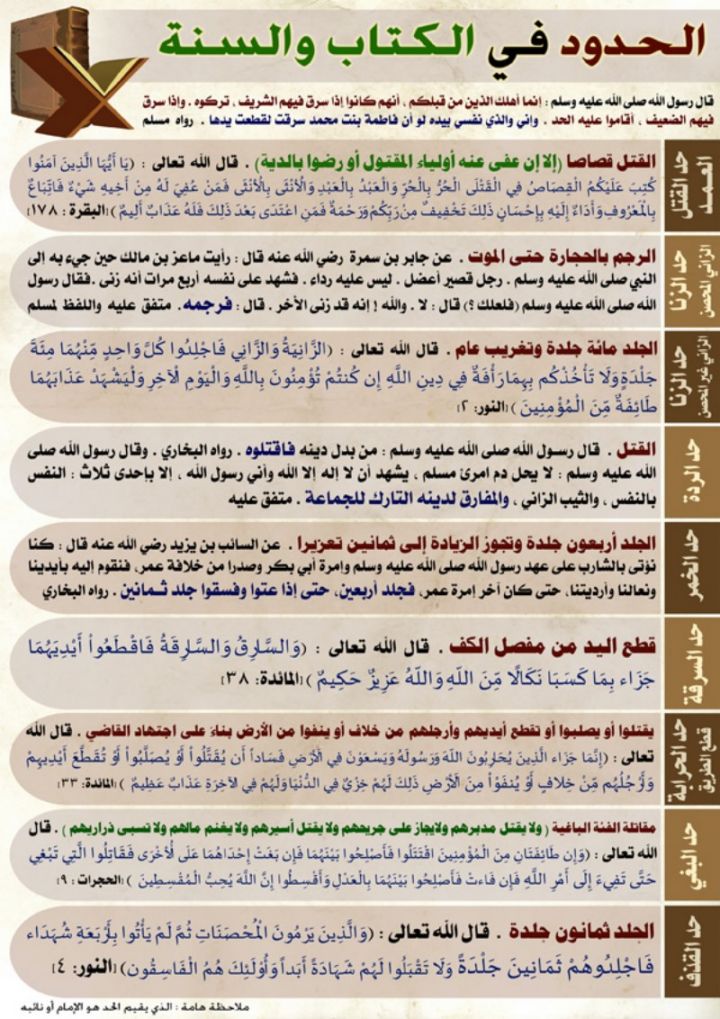 الحدود في الكتاب والسنة
قال رسول الله صلى الله عليه وسلم : إنما أهلك الذين من قبلكم ، أنهم كانوا إذا سرق فيهم الشريف ، تركوه . وإذا سرق
فيهم الضعيف ، أقاموا عليه الحد . وأني والذي نفسي بيده لو أن فاطمة بنت محمد سرقت لقطعت يدها . رواه مسلم
حد القتل العمد
القتل قصاصا (إلا إن عفى عنه أولياء المقتول أو رضوا بالدية) . قال الله تعالى : (يَا أَيُّهَا الَّذِينَ آمَنُوا
كُتِبَ عَلَيْكُمُ الْقِصَاصُ فِي الْقَتْلَى الْحُرُّ بِالْحُرِّ وَالْعَبْدُ بِالْعَبْدِ وَالْأُنْثَى بِالْأُنْثَى فَمَنْ عُفِيَ لَهُ مِنْ أَخِيهِ شَيْءٌ فَاتِّبَاعٌ
بِالْمَعْرُوفِ وَأَدَاءٌ إِلَيْهِ بِإِحْسَانٍ ذَلِكَ تَخْفِيفٌ مِنْ رَبِّكُمْ وَرَحْمَةٌ فَمَنِ اعْتَدَى بَعْدَ ذَلِكَ فَلَهُ عَذَابٌ أَلِيمٌ )[البقرة : ١٧٨]
حد الزنا
الزاني المحصن
الرجم بالحجارة حتى الموت . عن جابر بن سمرة رضي الله عنه قال : رأيت ماعز بن مالك حين جيء به إلى
النبي صلى الله عليه وسلم . رجل قصير أعضل . ليس عليه رداء . فشهد على نفسه أربع مرات أنه زنى .فقال رسول
الله صلى الله عليه وسلم (فلعلك ؟) قال : لا . والله ! إنه قد زنى الأخر . قال : فرجمه . متفق عليه واللفظ لمسلم
حد الزنا
الزاني غير المحصن
الجلد مائة جلدة وتغريب عام . قال الله تعالى : (الزَّانِيَةُ وَالزَّانِي فَاجْلِدُوا كُلَّ وَاحِدٍ مِّنْهُمَا مِئَةَ
جَلْدَةٍ وَلَا تَأْخُذْكُم بِهِمَا رَأْفَةٌ فِي دِينِ اللَّهِ إِن كُنتُمْ تُؤْمِنُونَ بِاللَّهِ وَالْيَوْمِ الْآخِرِ وَلْيَشْهَدْ عَذَابَهُمَا
طَائِفَةٌ مِّنَ الْمُؤْمِنِينَ )[النور: ٢]
حد الردة
القتل . قال رسول الله صلى الله عليه وسلم : من بدل دينه فاقتلوه . رواه البخاري . وقال رسول الله صلى
الله عليه وسلم : لا يحل دم امرئ مسلم ، يشهد أن لا إله إلا الله وأني رسول الله ، إلا بإحدى ثلاث : النفس
بالنفس ، والثيب الزاني ، والمفارق لدينه التارك للجماعة . متفق عليه
حد الخمر
الجلد أربعون جلدة وتجوز الزيادة إلى ثمانين تعزيرا . عن السائب بن يزيد رضي الله عنه قال : كنا
نؤتى بالشارب على عهد رسول الله صلى الله عليه وسلم وإمرة أبي بكر وصدرا من خلافة عمر، فنقوم إليه بأيدينا
ونعالنا وأرديتنا، حتى كان آخر إمرة عمر، فجلد أربعين، حتى إذا عتوا وفسقوا جلد ثمانين . رواه البخاري
حد السرقة
قطع اليد من مفصل الكف . قال الله تعالى : (وَالسَّارِقُ وَالسَّارِقَةُ فَاقْطَعُواْ أَيْدِيَهُمَا
جَزَاء بِمَا كَسَبَا نَكَالًا مِّنَ اللّهِ وَاللّهُ عَزِيزٌ حَكِيمٌ )[المائدة: ٣٨]
حد الحرابة
قطع الطريق
يقتلوا أو يصلبوا أو تقطع أيديهم وأرجلهم من خلاف أو ينفوا من الأرض بناءً على اجتهاد القاضي . قال الله
تعالى : (إِنَّمَا جَزَاء الَّذِينَ يُحَارِبُونَ اللّهَ وَرَسُولَهُ وَيَسْعَوْنَ فِي الْأَرْضِ فَسَاداً أَن يُقَتَّلُواْ أَوْ يُصَلَّبُواْ أَوْ تُقَطَّعَ أَيْدِيهِمْ
وَأَرْجُلُهُم مِّنْ خِلافٍ أَوْ يُنفَوْاْ مِنَ الْأَرْضِ ذَلِكَ لَهُمْ خِزْيٌ فِي الدُّنْيَا وَلَهُمْ فِي الآخِرَةِ عَذَابٌ عَظِيمٌ )[المائدة: ٣٣]
حد البغي
مقاتلة الفئة الباغية ( ولا يقتل مدبرهم ولايجاز على جريحهم ولا يقتل أسيرهم ولا يغنم مالهم ولا تسبى ذراريهم ) . قال
الله تعالى : (وَإِن طَائِفَتَانِ مِنَ الْمُؤْمِنِينَ اقْتَتَلُوا فَأَصْلِحُوا بَيْنَهُمَا فَإِن بَغَتْ إِحْدَاهُمَا عَلَى الْأُخْرَى فَقَاتِلُوا الَّتِي تَبْغِي
حَتَّى تَفِيءَ إِلَى أَمْرِ اللَّهِ فَإِن فَاءتْ فَأَصْلِحُوا بَيْنَهُمَا بِالْعَدْلِ وَأَقْسِطُوا إِنَّ اللَّهَ يُحِبُّ الْمُقْسِطِينَ )[الحجرات : ٩]
حد القذف
الجلد ثمانون جلدة . قال الله تعالى : (وَالَّذِينَ يَرْمُونَ الْمُحْصَنَاتِ ثُمَّ لَمْ يَأْتُوا بِأَرْبَعَةِ شُهَدَاء
فَاجْلِدُوهُمْ ثَمَانِينَ جَلْدَةً وَلَا تَقْبَلُوا لَهُمْ شَهَادَةً أَبَداً وَأُوْلَئِكَ هُمُ الْفَاسِقُونَ) [النور: ٤]
ملاحظة هامة : الذي يقيم الحد هو الإمام أو نائبه